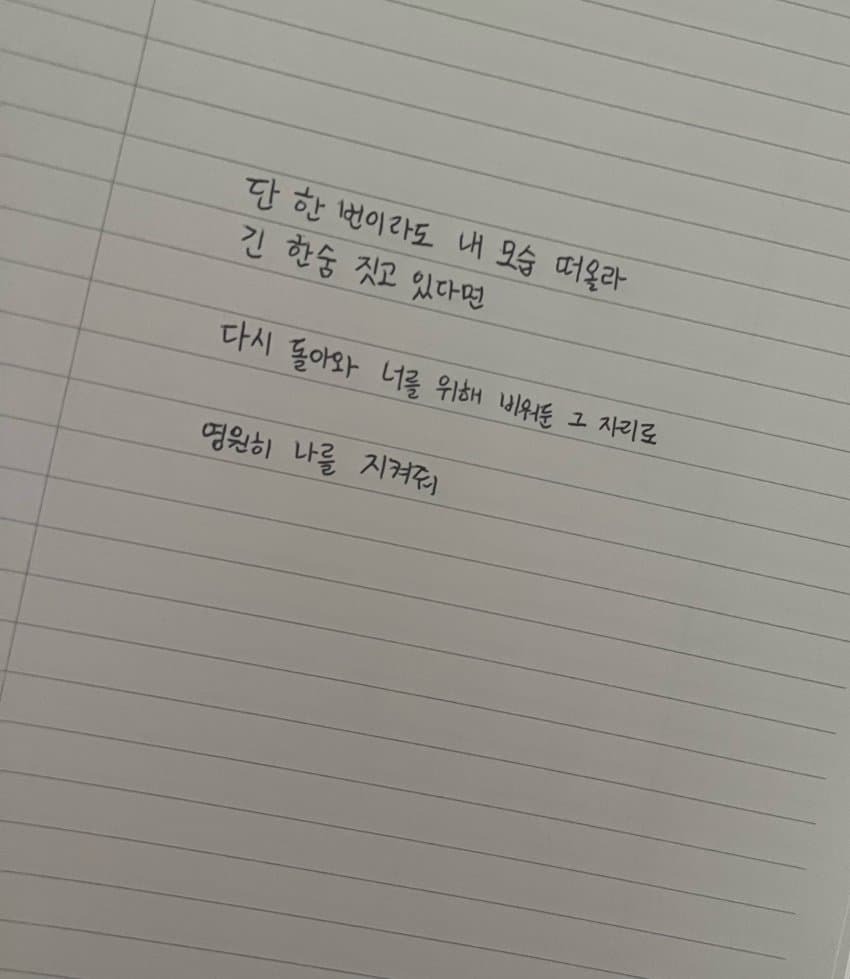 단 한 번이라도 내 모습 떠올라
긴 한숨 짓고 있다면
다시 돌아와 너를 위해 비워둔 그 자리로
영원히 나를 지켜줘